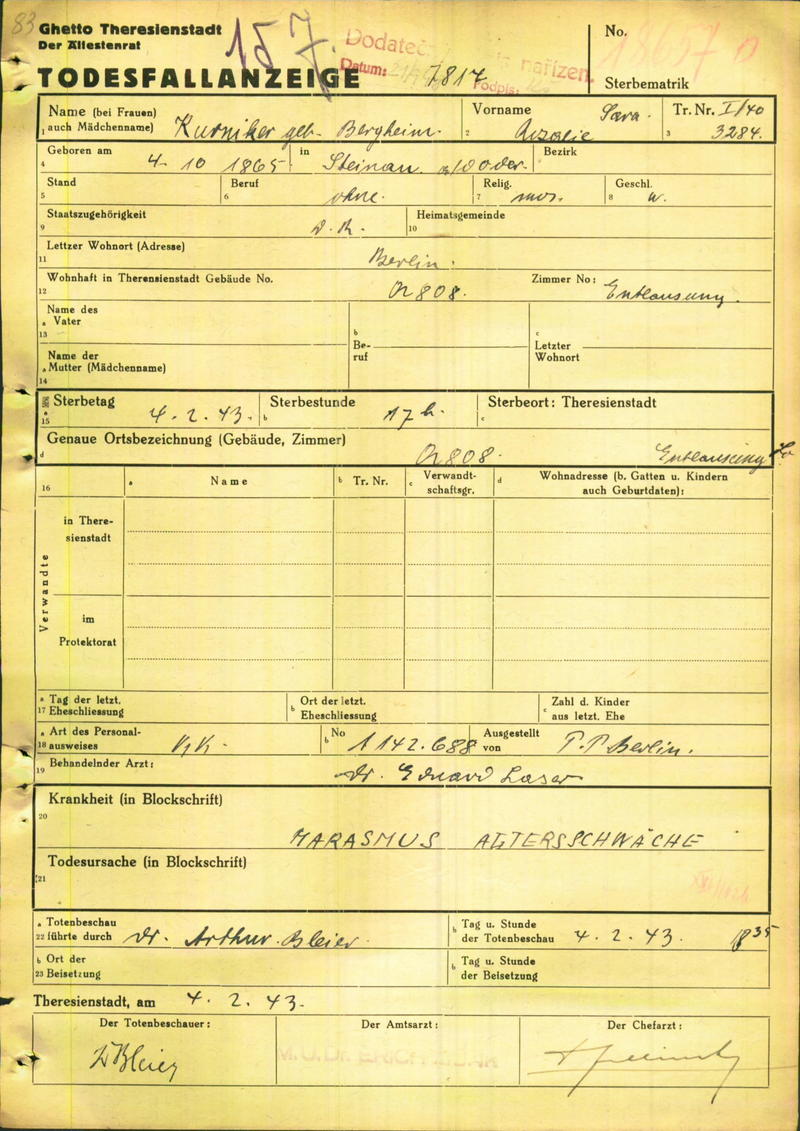 83
Ghetto Theresienstadt
Der Ältestenrat
157.
TODESFALLANZEIGE
7817
Datum:
No.
Sterbematrik
Name (bei Frauen)
1 auch Mädchenname) Kurniker geb. Bergheim.
Vorname Sara.
2
Tr. Nr. I/40
3 3284.
Geboren am
4 4. 10 1865 in Steinau a/Oder.
Bezirk
Stand
5
Beruf
6 ohne.
Relig.
7 mos.
Geschl.
8 w.
Staatszugehörigkeit
9 D. R.
Heimatsgemeinde
10
Lettzer Wohnort (Adresse)
11 Berlin.
Wohnhaft in Therensienstadt Gebäude No.
12 808.
Zimmer No: Entlausung.
Name des
a Vater
13
b
Be-
ruf
c
Letzter
Wohnort
Name der
a Mutter (Mädchenname)
14
a Sterbetag
15 4. 2. 43.
Sterbestunde
b 17 h.
Sterbeort: Theresienstadt
c
Genaue Ortsbezeichnung (Gebäude, Zimmer)
d 808. Entlausung
16
a Name
b Tr. Nr.
c Verwandt-
schaftsgr.
d Wohnadresse (b. Gatten u. Kindern
auch Geburtdaten):
Verwandte
in There-
sienstadt
im
Protektorat
a Tag der letzt.
17 Eheschliessung
b Ort der letzt.
Eheschliessung
c Zahl d. Kinder
aus letzt. Ehe
a Art des Personal-
18 ausweises KK.
b No 1142.688
Ausgestellt
von P. P Berlin.
Behandelnder Arzt:
19 Dr. Eduard Laser
Krankheit (in Blockschrift)
20
MARASMUS ALTERSSCHWÄCHE
Todesursache (in Blockschrift)
21
a Totenbeschau
22 führte durch Dr. Arthur Bleier.
b Tag u. Stunde
der Totenbeschau 4. 2. 43. 18 35
b Ort der
23 Beisetzung
b Tag u. Stunde
der Beisetzung
Theresienstadt, am 4. 2. 43.
Der Totenbeschauer:
Der Amtsarzt:
Der Chefarzt:
Dr Bleier